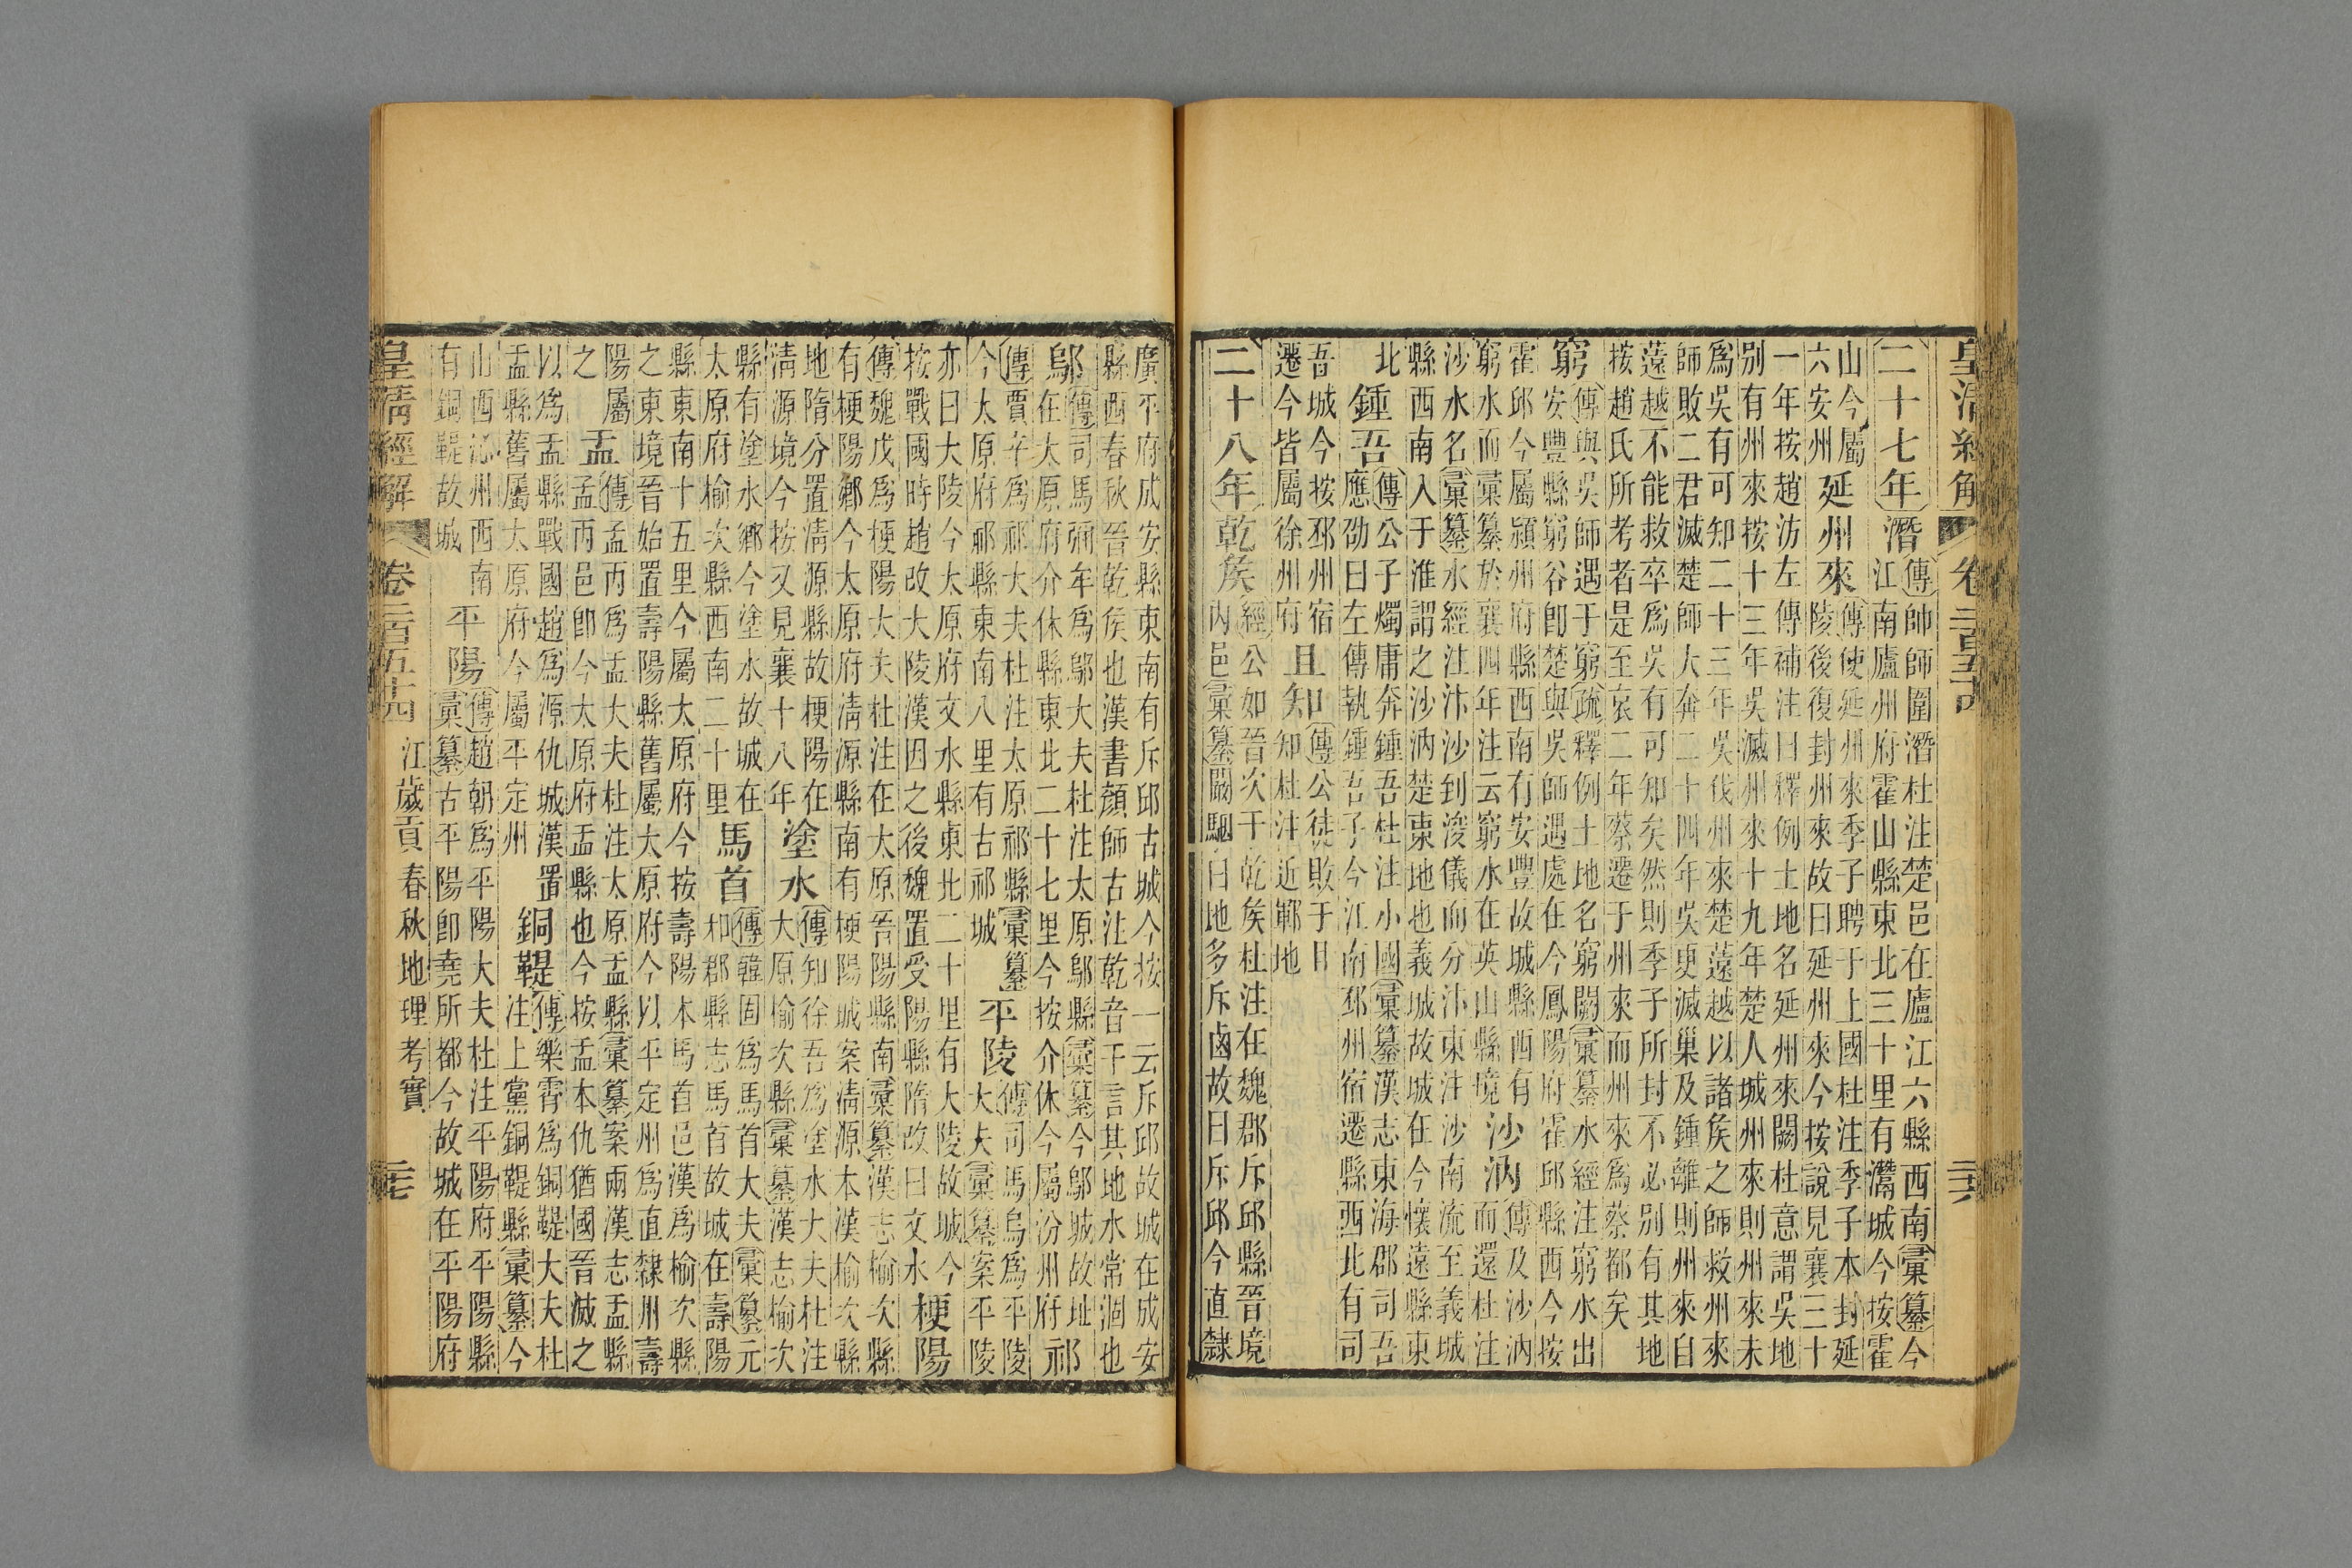 皇清經解 卷二百五十四 二十六
二十七年潛傳師師圍潛杜注楚邑在廬江六縣西南彙纂今江南廬州府霍山縣東北三十里有灊城今按霍
山今屬六安州延州來傳使延州來季子聘于上國杜注季子本封延陵後復封州來故曰延州來今按說見襄三十
一年按趙汸左傳補注曰釋例土地名延州來闕杜意謂吳地別有州來按十三年吳滅州來十九年楚人城州來則州來未
爲吳有可知二十三年吳伐州來楚薳越以諸矦之師救州來師敗二君滅楚師大奔二十四年吳更滅巢及鍾離則州來自
薳越不能救卒爲吳有可知矣然則季子所封不必別有其地按趙氏所考者是至哀二年蔡遷于州來而州來爲蔡都矣
窮傳與吳師遇于窮疏釋例土地名窮闕彙纂水經注窮水出安豐縣窮谷卽楚與吳師遇處在今鳳陽府霍邱縣西今按
霍邱今屬潁州府縣西南有安豐故城縣西有窮水而彙纂於襄四年注云窮水在英山縣境沙汭傳及沙汭而還杜注
沙水名彙纂水經注汴沙到浚儀而分汴東注沙南流至義城縣西南入于淮謂之沙汭楚東地也義城故城在今懷遠縣東
北鍾吾傳公子燭庸奔鍾吾杜注小國彙纂漢志東海郡司吾應劭曰左傳執鍾吾子今江南邳州宿遷縣西北有司
吾城今按邳州宿遷今皆屬徐州府且知傳公徒敗于且知杜注近鄆地
二十八年乾矦經公如晉次于乾矦杜注在魏郡斥邱縣晉境內邑彙纂闞駰曰地多斥鹵故曰斥邱今直隸
廣平府成安縣東南有斥邱古城今按一云斥邱故城在成安縣西春秋晉乾矦也漢書顏師古注乾音干言其地水常涸也
鄔傳司馬彌牟爲鄔大夫杜注太原鄔縣彙纂今鄔城故址在太原府介休縣東北二十七里今按介休今屬汾州府祁
傳賈辛爲祁大夫杜注太原祁縣彙纂今太原府祁縣東南八里有古祁城平陵傳司馬烏爲平陵大夫彙纂案平陵
亦曰大陵今太原府文水縣東北二十里有大陵故城今按戰國時趙改大陵漢因之後魏置受陽縣隋改曰文水梗陽
傳魏戊爲梗陽大夫杜注在太原晉陽縣南彙纂漢志榆次縣有梗陽鄉今太原府淸源縣南有梗陽城案淸源本漢榆次縣
地隋分置淸源縣故梗陽在淸源境今按又見襄十八年塗水傳知徐吾爲塗水大夫杜注大原榆次縣彙纂漢志榆次
縣有塗水鄉今塗水故城在太原府榆次縣西南二十里馬首傳韓固爲馬首大夫彙纂元和郡縣志馬首故城在壽陽
縣東南十五里今屬太原府今按壽陽本馬首邑漢爲榆次縣之東境晉始置壽陽縣舊屬大原府今以平定州爲直隸州壽
陽屬之盂傳孟丙爲盂大夫杜注太原盂縣彙纂案兩漢志盂縣孟丙邑卽今太原府盂縣也今按盂本仇猶國晉滅之
以爲盂縣戰國趙爲源仇城漢置盂縣舊屬大原府今屬平定州銅鞮傳樂霄爲銅鞮大夫杜注上黨銅鞮縣彙纂今
山西沁州西南有銅鞮故城平陽傳趙朝爲平陽大夫杜注平陽府平陽縣彙纂古平陽卽堯所都今故城在平陽府
皇淸經解 卷二百五十四 江歲貢春秋地理考實 二十七